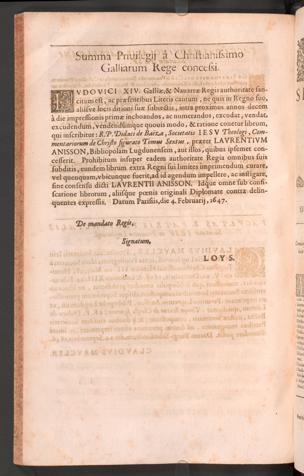 Summa Privilegij à Christianissimo
Galliarum Rege concessi.
LVDOVICI XIV. Galliæ, & Nauarræ Regis authoritate san-
citum est, ac præsentibus Literis cautum, ne quis in Regno suo,
aliisve locis ditioni suæ subiectis, intra proximos annos decem
à die impressionis primæ inchoandos, ac numerandos, excudat, vendat,
excudendum, vendendumque quouis modo, & ratione conetur librum,
qui inscribitur: R. P. Didaci de Baëza, Societatis IESV Theologi, Com-
mentariorum de Christo figurato Tomus Sextus, præter LAVRENTIVM
ANISSON, Bibliopolam Lugdunensem, aut illos, quibus ipsemet con-
cesserit. Prohibitum insuper eadem authoritate Regia omnibus suis
subditis, eundem librum extra Regni sui limites imprimendum curare,
vel quempiam, vbicunque fuerit, ad id agendum impellere, ac instigare,
sine consensu dicti LAVRENTII ANISSON. Idque omne sub confis-
catione librorum, aliisque pœnis originali Diplomate contra delin-
quentes expressis. Datum Parisiis, die 4. Februarij, 1647.
De mandato Regis,
Signatum,
LOYS.